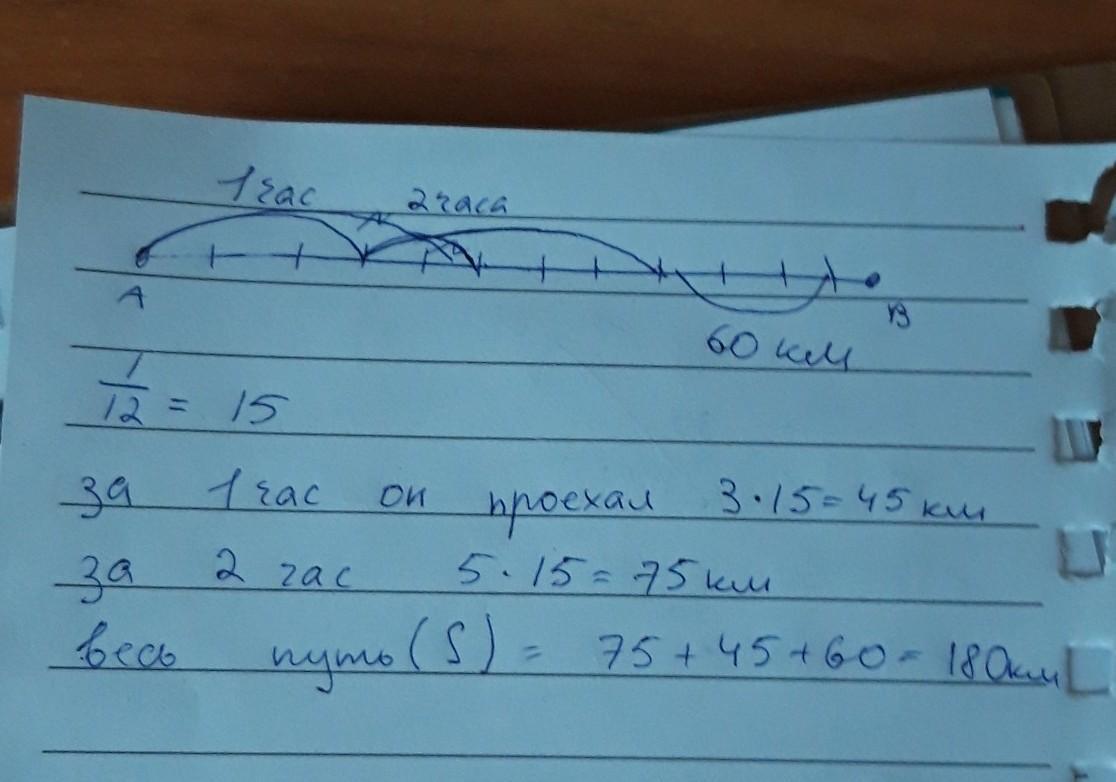 1 час 2 часа
A B
60 км
1/12 = 15
за 1 час он проехал 3·15=45 км
за 2 час 5·15=75 км
весь путь (S) = 75+45+60=180км